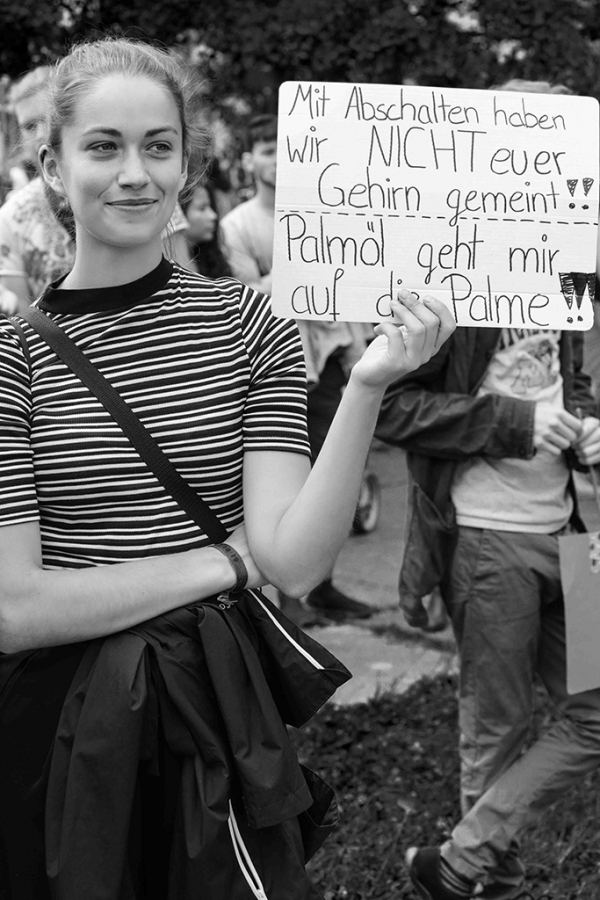 Mit Abschalten haben
wir NICHT euer
Gehirn gemeint!!
Palmöl geht mir
auf die Palme!!